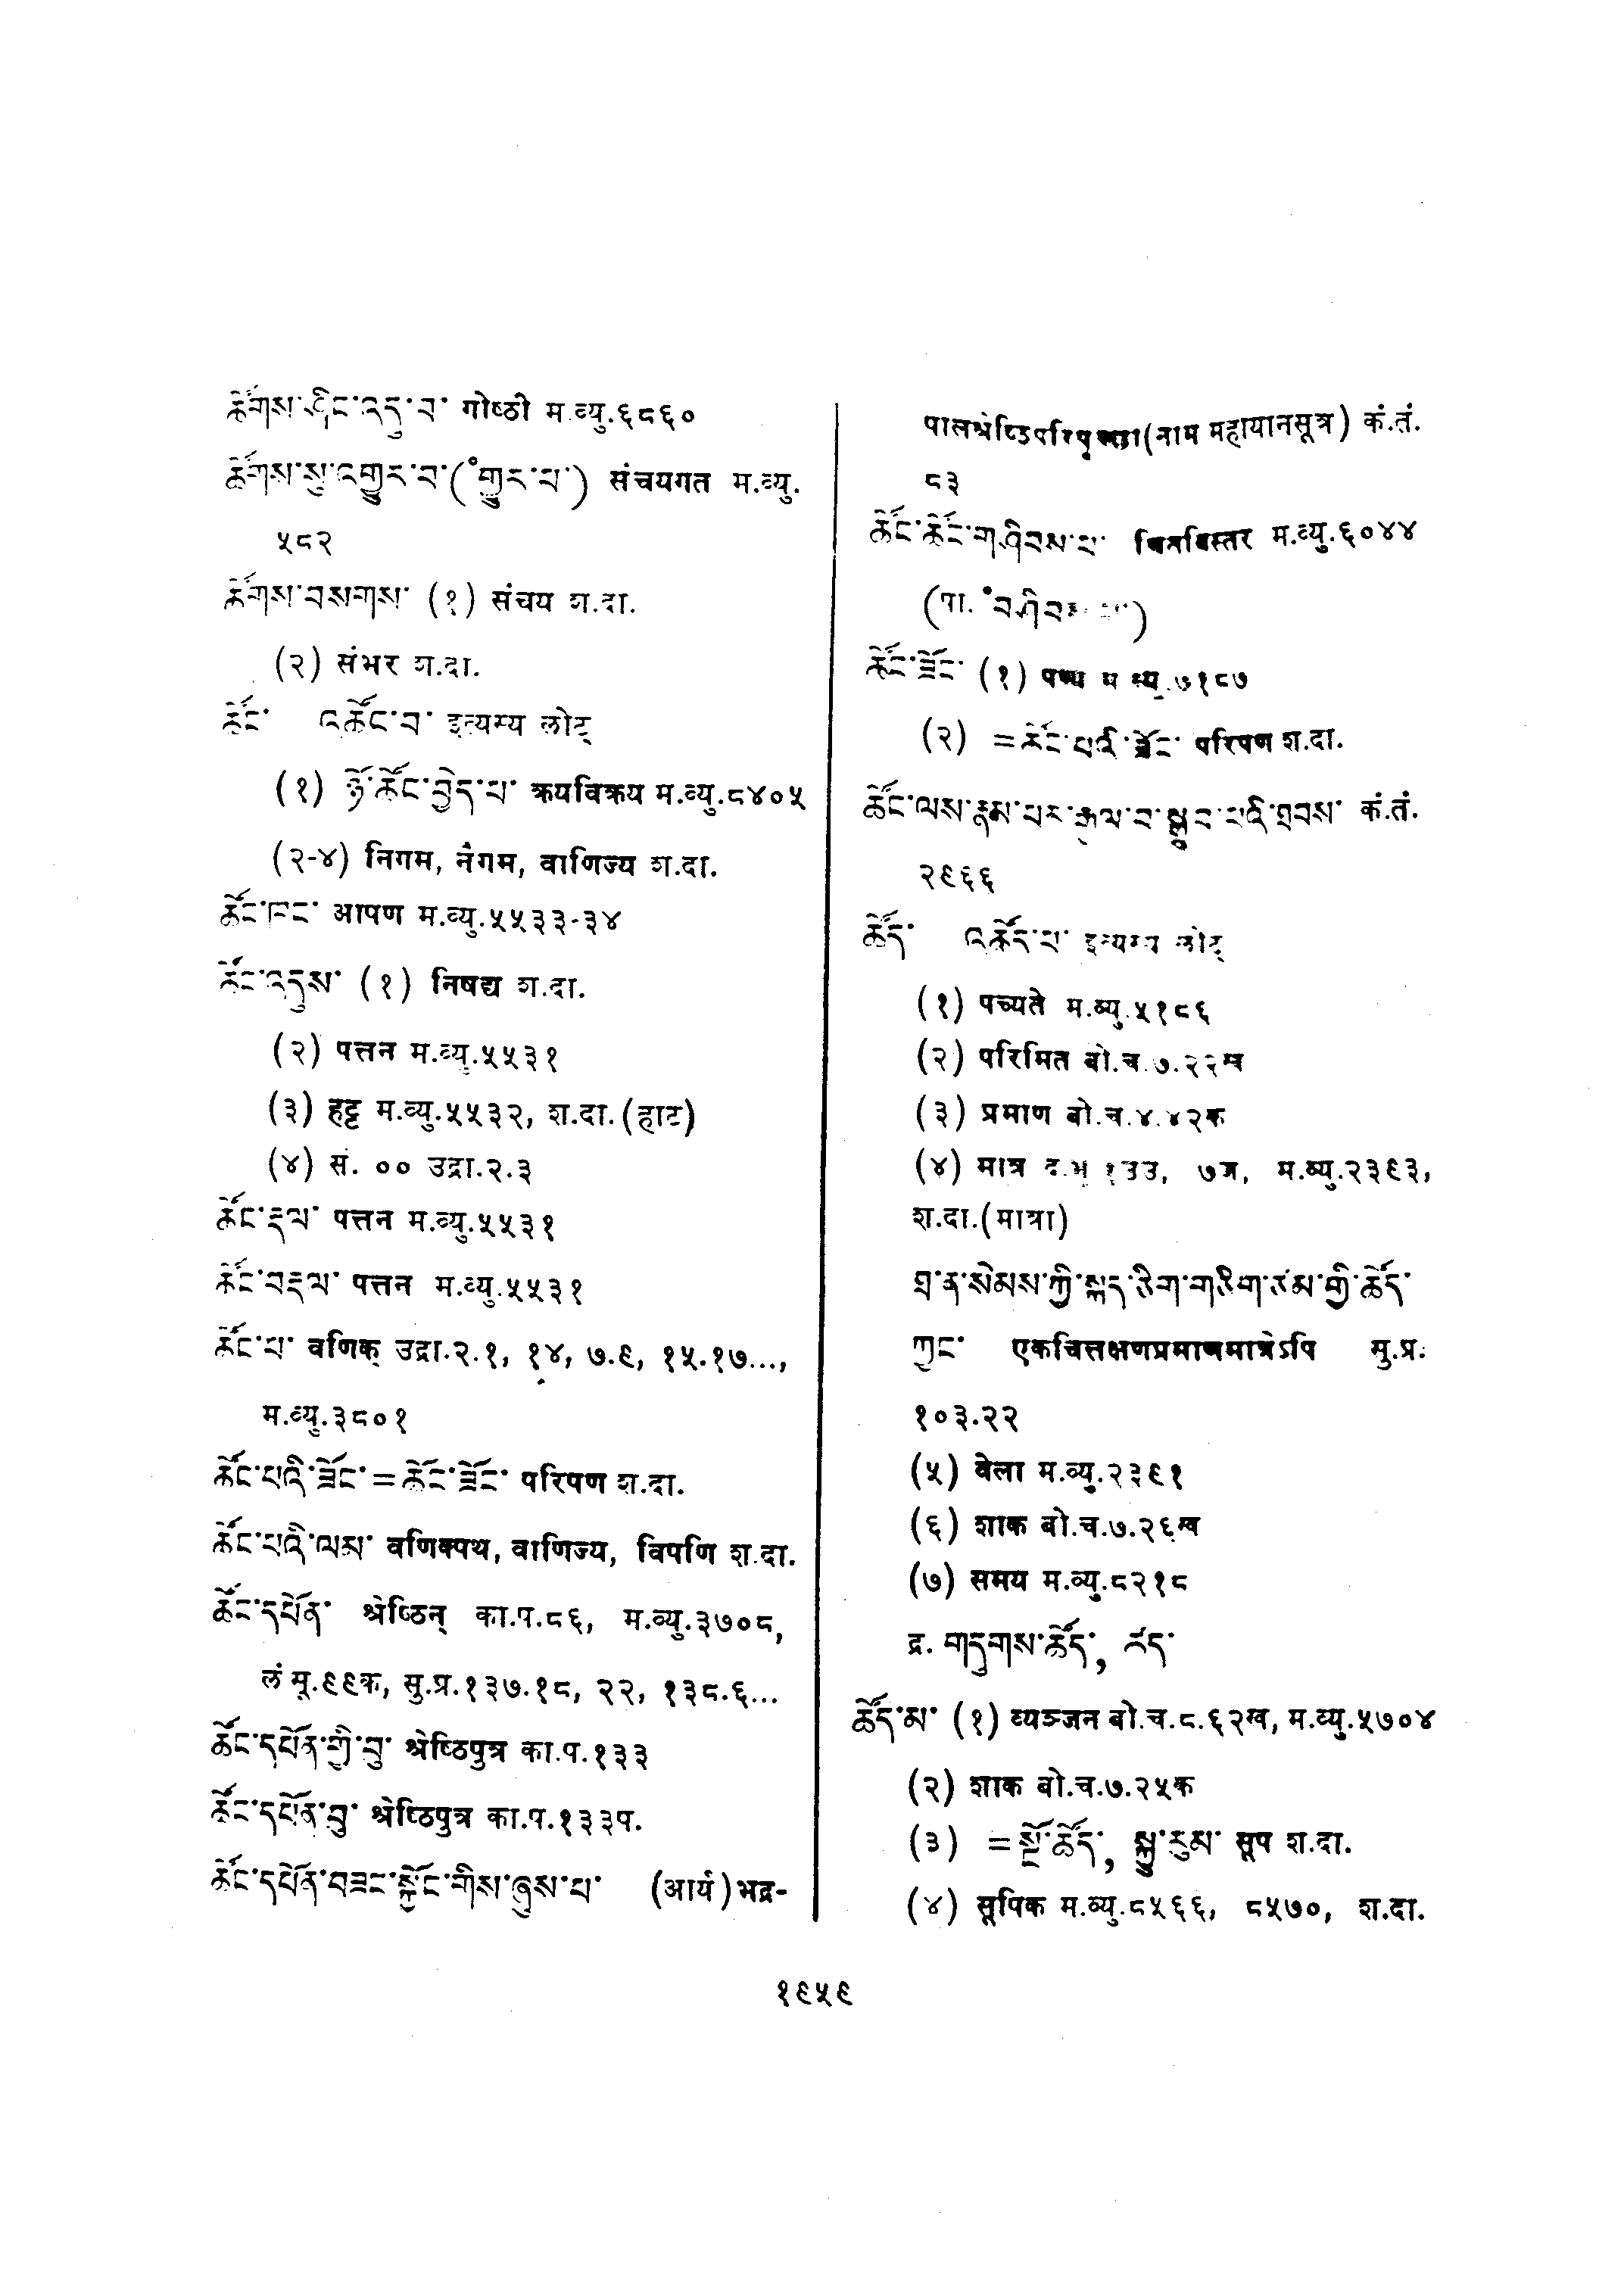 ཚོགས་ཤིང་འདུ་བ་ गोष्ठी म.व्यु.६८६०
ཚོགས་སུ་འགྱུར་བ་(°གྱུར་པ་) संचयगत म.व्यु.
५८२
ཚོགས་བསགས་ (१) संचय श.दा.
(२) संभर श.दा.
ཚོང་ འཚོང་བ་ इत्यस्य लोट्
(१) ཉོ་ཚོང་བྱེད་པ་ क्रयविक्रय म.व्यु.८४०५
(२-४) निगम, नैगम, वाणिज्य श.दा.
ཚོང་ཁང་ आपण म.व्यु.५५३३-३४
ཚོང་འདུས་ (१) निषद्य श.दा.
(२) पत्तन म.व्यु.५५३१
(३) हट्ट म.व्यु.५५३२, श.दा.(हाट)
(४) सं. ०० उद्रा.२.३
ཚོང་རྡལ་ पत्तन म.व्यु.५५३१
ཚོང་བརྡལ་ पत्तन म.व्यु.५५३१
ཚོང་པ་ वणिक् उद्रा.२.१, १४, ७.९, १५.१७...,
म.व्यु.३८०१
ཚོང་པའི་ཟོང་=ཚོང་ཟོང་ परिपण श.दा.
ཚོང་པའི་ལམ་ वणिक्पथ, वाणिज्य, विपणि श.दा.
ཚོང་དཔོན་ श्रेष्ठिन् का.प.८६, म.व्यु.३७०८,
लं मू.९९क, सु.प्र.१३७.१८, २२, १३८.६...
ཚོང་དཔོན་གྱི་བུ་ श्रेष्ठिपुत्र का.प.१३३
ཚོང་དཔོན་བུ་ श्रेष्ठिपुत्र का.प.१३३प.
ཚོང་དཔོན་བཟང་སྐྱོང་གིས་ཞུས་པ་ (आर्य)भद्र-
पालश्रेष्ठिपरिपृच्छा(नाम महायानसूत्र) कं.तं.
८३
ཚོང་ཚོང་གཤིབས་པ་ म.व्यु.६०४४
(पा.
ཚོང་ཟོང་ (१) पण्य म.व्यु.७१८७
(२) =ཚོང་པའི་ཟོང་ परिपण श.दा.
ཚོང་ལས་རྣམ་པར་རྒྱལ་བ་སྒྲུབ་པའི་ཐབས་ कं.तं.
२९६६
ཚོད་ འཚོད་པ་ इत्यस्य लोट्
(१) पच्यते म.व्यु.५१८६
(२) परिमित बो.च.७.२२ख
(३) प्रमाण बो.च.४.४२क
(४) मात्र म.व्यु.२३९३,
श.दा.(मात्रा)
ཐ་ན་སེམས་ཀྱི་སྐད་ཅིག་གཅིག་ཙམ་གྱི་ཚོད་
ཀྱང་ एकचित्तक्षणप्रमाणमात्रेऽपि सु.प्र.
१०३.२२
(५) वेला म.व्यु.२३९१
(६) शाक बो.च.७.२६ख
(७) समय म.व्यु.८२१८
द्र. གདུགས་ཚོད་, ཚད་
ཚོད་མ་ (१) व्यञ्जन बो.च.८.६२ख, म.व्यु.५७०४
(२) शाक बो.च.७.२५क
(३) =སྔོ་ཚོད་, སྐྱུ་རུམ་ सूप श.दा.
(४) सूपिक म.व्यु.८५६६, ८५७०, श.दा.
१९५९